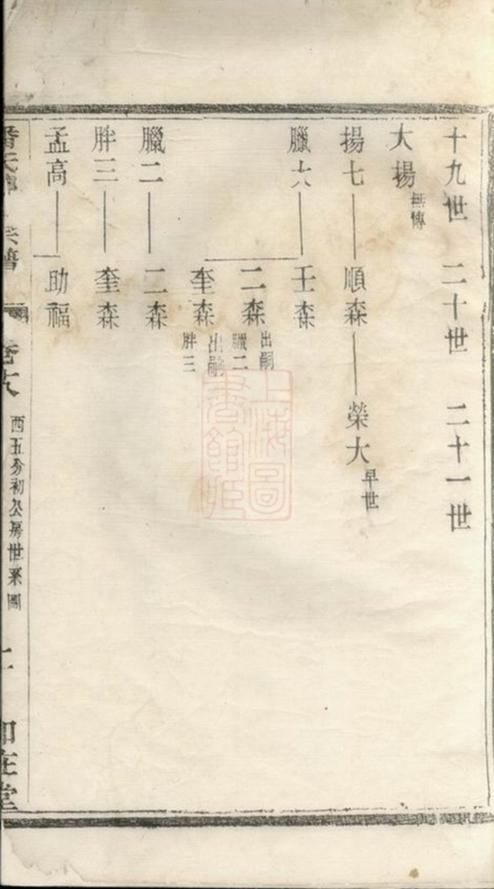 十九世 二十世 二十一世
大揚 無傳
揚七 順森 榮大 早世
臘六 壬森
二森 出嗣臘二
奎森 出嗣胖三
臘二 二森
胖三 奎森
孟高 助福
宗譜
西五分初公房世系圖
如在堂
上海圖書館藏